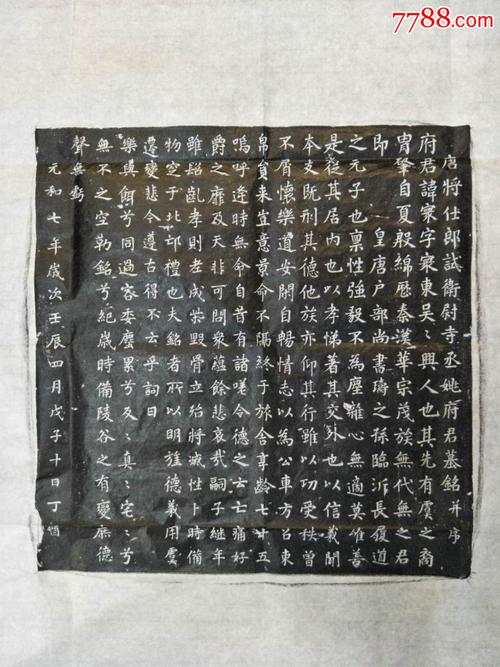 7788.com
唐將仕郎試衛尉寺丞姚府君墓銘并序
府君諱眾字眾東吳〻興人也其先有虞之裔
冑肇自夏殷綿歷秦漢華宗茂族無代無之君
即　皇唐戶部尚書璹之孫臨沂長履道
之元子也稟性強毅不為塵雜心無適莫雅善
是從其居內也以孝悌著其交外也以信義聞
本支既刑其德他族亦仰其行雖以功受秩曾
不屑懷樂道安閑自暢情志以為公車方召東
帛賁來豈意景命不隔終于旅舍享齡七十五
嗚呼逢時無命自昔有諸嗟令德之士痛好
爵之靡及天非可問眾蘊餘悲哀哉嗣子繼年
雖紹凱孝則老成柴毀骨立殆將滅性卜時備
物空于北邙禮也夫銘者所以明旌德義用虞
遷變悲令遵古得不云乎詞曰
樂與餌兮同過客委塵累兮反〻真〻宅〻兮
無不之空勒銘兮紀歲時備陵谷之有變庶德
聲無虧
元和七年歲次壬辰四月戊子十日丁酉